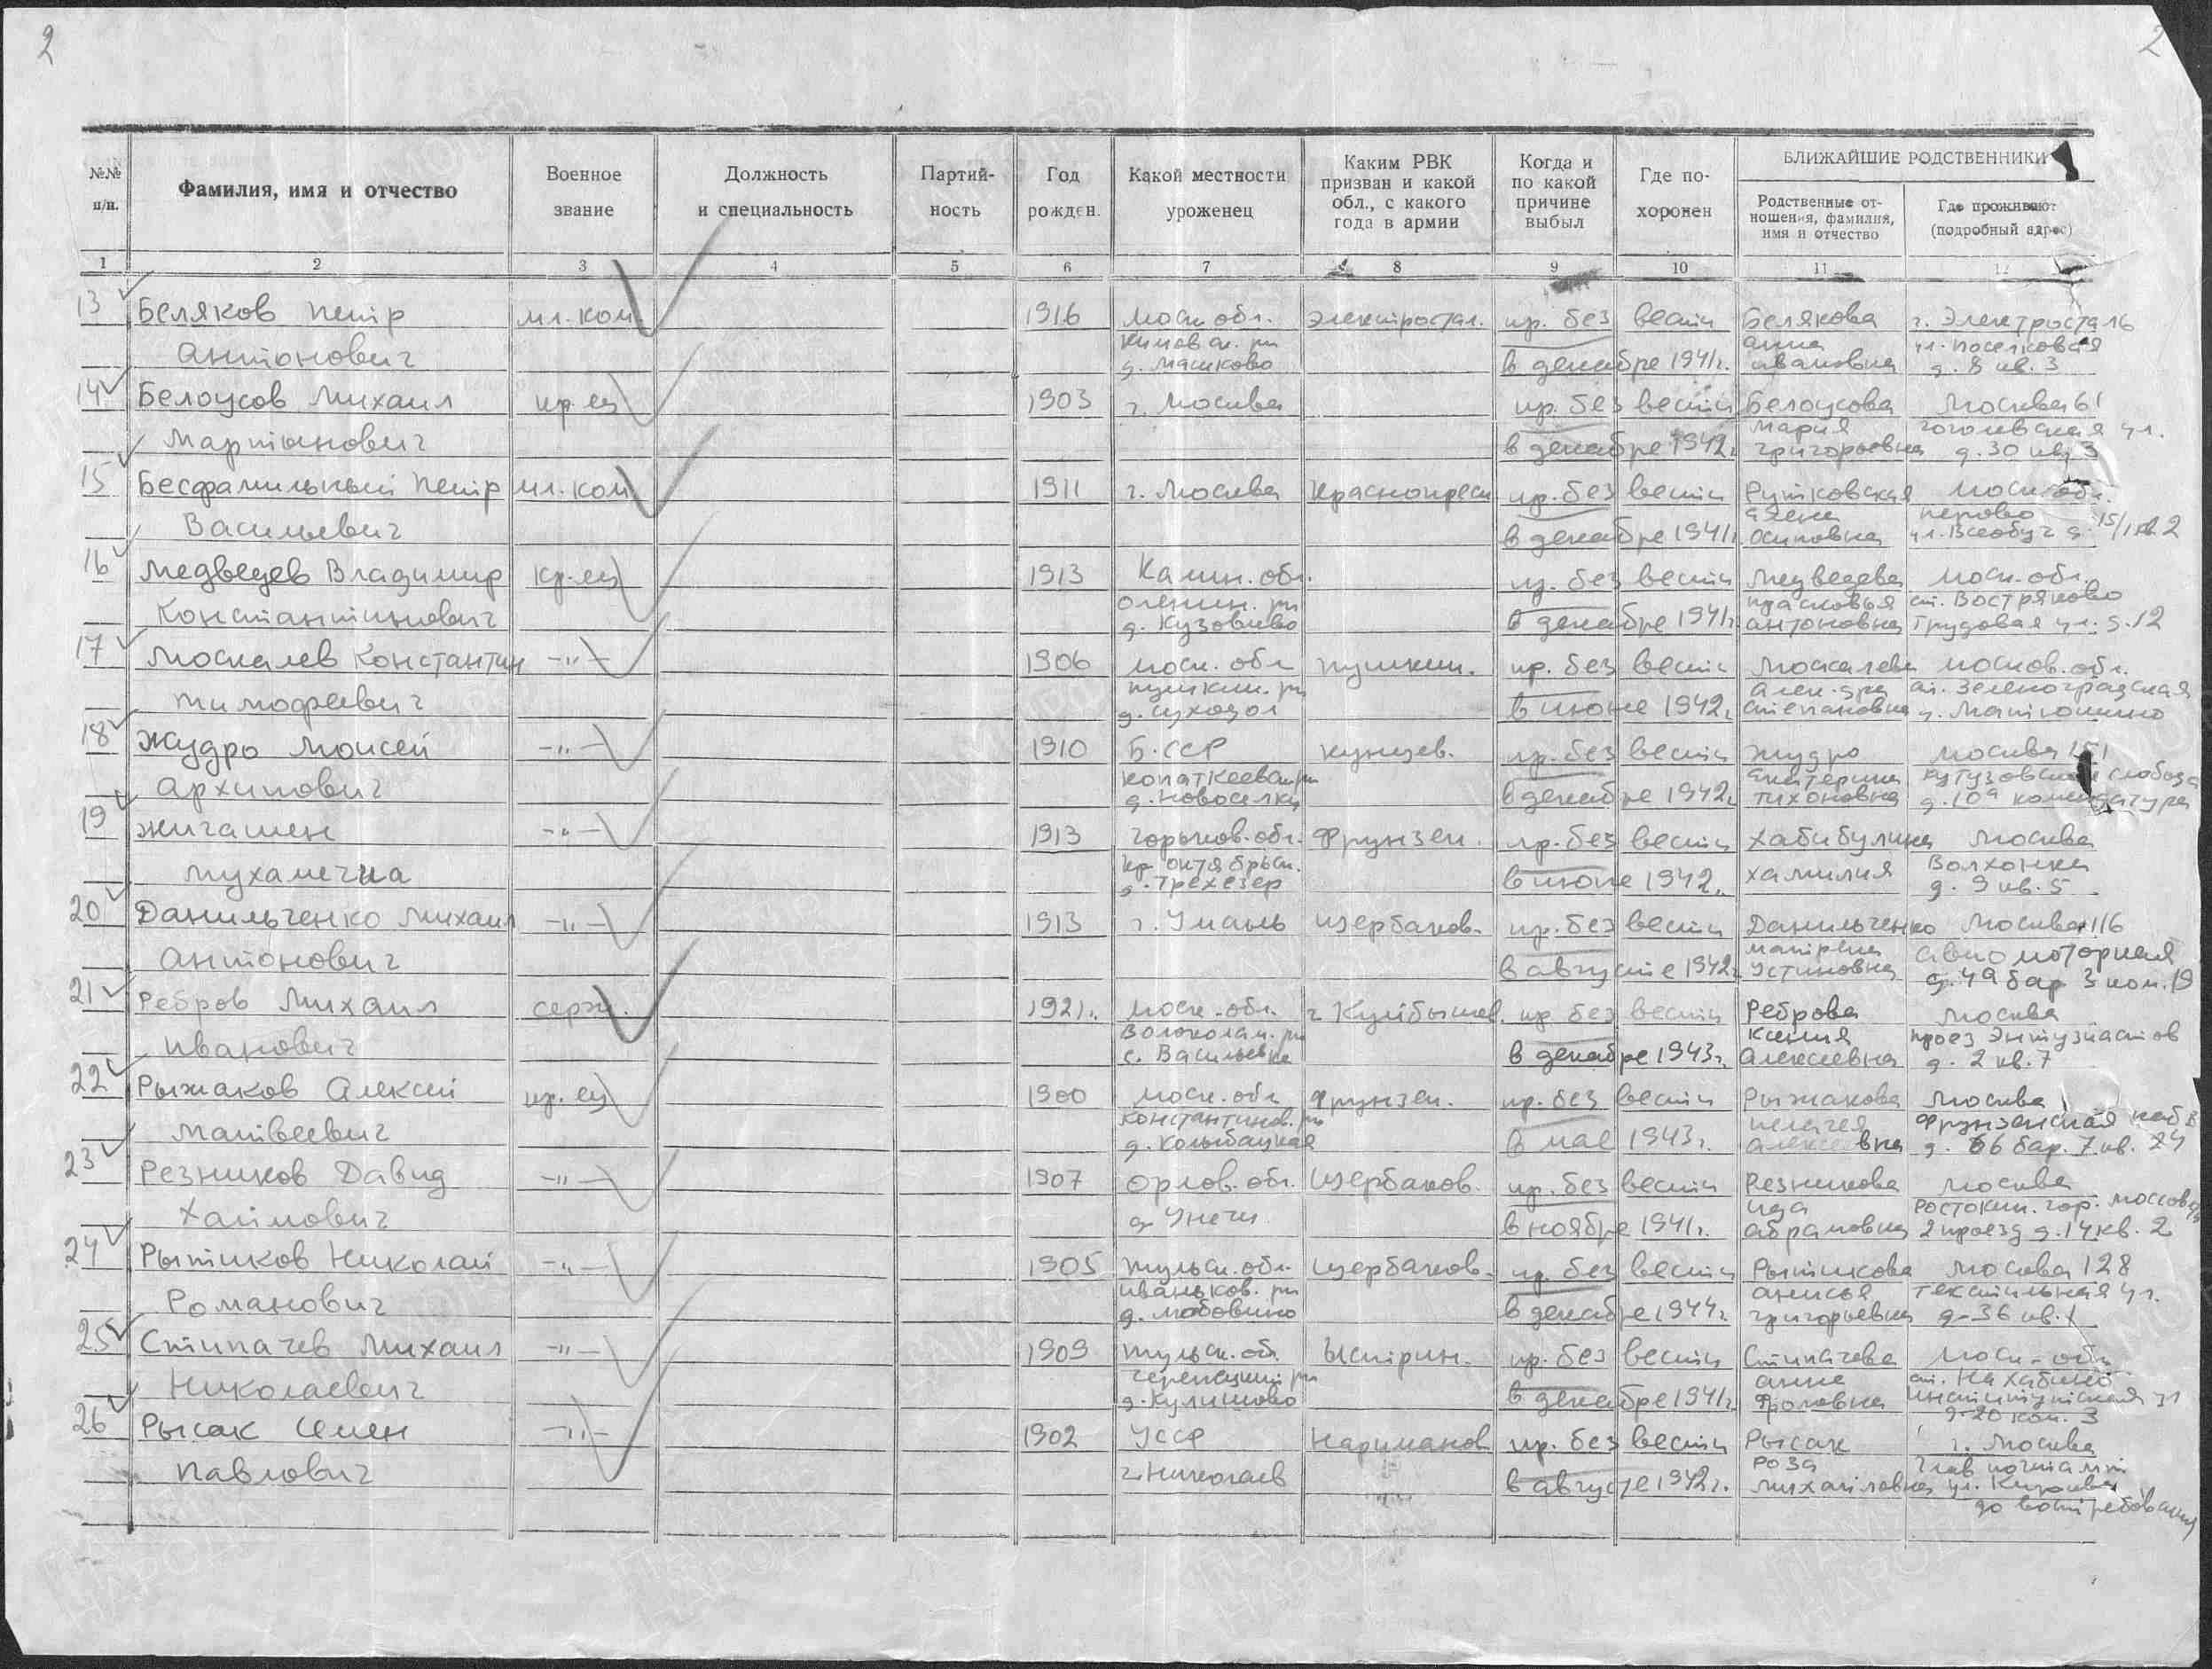 2
2
№№ п/п.
Фамилия, имя и отчество
Военное звание
Должность и специальность
Партий-ность
Год рожден.
Какой местности уроженец
Каким РВК призван и какой обл., с какого года в армии
Когда и по какой причине выбыл
Где по-хоронен
БЛИЖАЙШИЕ РОДСТВЕННИКИ
Родственные от-ношения, фамилия, имя и отчество
Где проживают (подробный адрес)
1 2 3 4 5 6 7 8 9 10 11 12
13 Беляков Петр мл. ком 1916 Моск. обл. Электростал. пр. без вести Белякова г. Электросталь
Антонович д. Машково в декабре 1941г. Анна Ивановна ул. Поселковая д. 8 кв. 3
14 Белоусов Михаил кр-ец 1903 г. Москва пр. без вести Белоусова Москва 61
Мартынович в декабре 1942г. Мария Григорьевна Гоголевская ул. д. 30 кв. 3
15 Бесфамильный Петр мл. ком 1911 г. Москва Краснопресн пр. без вести Рутковская Моск. обл.
Васильевич в декабре 1941г. Осиповна Перово ул. Всеобуч д. 15/1 кв 2
16 Медведев Владимир кр-ец 1913 Калин. обл. пр. без вести Медведева Моск. обл.
Константинович Оленин. рн в декабре 1941г. Прасковья Антоновна ст. Востряково Трудовая ул. д. 12
17 Москалев Константин -"- 1906 Моск. обл Пушкин. пр. без вести Москалева Москов. обл.
Тимофеевич Пушкин. рн д. Суходол в июне 1942г. Алек-дра Степановна ст. Зеленоградская д. Матюшино
18 Жудро Моисей -"- 1910 Б.ССР Кунцев. пр. без вести Жудро Москва
Архипович д. Новоселки в декабре 1942г. Екатерина Тихоновна Кутузовская слобода д. 10а комендатура
19 Жигашен -"- 1913 Горьков. обл. Фрунзен. пр. без вести Хабибулина Москва
Кр. Октябрьск. д. Трехезер в июне 1942г. Волхонка д. 9 кв. 5
20 Данильченко Михаил -"- 1913 г. Умань Щербаков. пр. без вести Данильченко Москва 116
Антонович в августе 1942г. Матрена Устиновна Авиомоторная д. 4а бар 3 ком. 19
21 Ребров Михаил серж. 1921г. Моск. обл. г. Куйбышев. пр. без вести Реброва Москва
Иванович Волоколам. рн с. Васильевка в декабре 1943г. Ксения Алексеевна проез Энтузиастов д. 2 кв. 7
22 Рыжаков Алексей кр-ец 1900 Моск. обл Фрунзен. пр. без вести Рыжакова Москва
Матвеевич Константинов. рн в мае 1943г. Пелагея Алексеевна Фрунзенская наб д. 66 бар. 7 кв. 24
23 Резников Давид -"- 1907 Орлов. обл. Щербаков. пр. без вести Резникова Москва
Хаимович д. Унечи в ноябре 1941г. Ида Абрамовна Ростокин. гор. 2 проезд д. 14 кв. 2
24 Рытиков Николай -"- 1905 Тульск. обл. Щербаков. пр. без вести Рытикова Москва 128
Романович Иваньков. рн в декабре 1944г. Анисья Григорьевна Текстильная ул. д-36 кв. 1
25 Стипачев Михаил -"- 1909 Тульск. обл. Ыстрин. пр. без вести Стипачева Моск-обл.
Николаевич Черепецкий рн д. Кулешово в декабре 1941г. Анна Фроловна ст. Нахабино Институтская ул д-20 ком. 3
26 Рысак Семен -"- 1902 УССР Нариманов пр. без вести Рысак г. Москва
Павлович г. Николаев в августе 1942г. Роза Михайловна Глав почтамт ул. Кирова до востребования